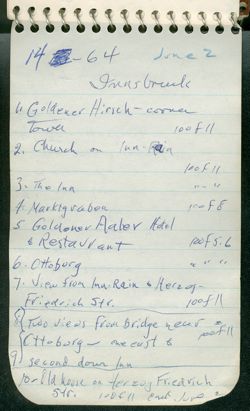 14 -64 June 2
Innsbruck
1. Goldener Hirsch - corner
Tower 100 f 11
2. Church on Inn-Rain
100 f 11
3. The Inn " " "
4. Marktgraben 100 f 8
5 Goldener Adler Hotel
& Restaurant 100 f 5.6
6. Ottoburg " " "
7. View from Inn-Rain & Herzog-
Friedrich Str. 100 f 11
8) Two views from Bridge near
Ottoburg - one east & 100 f 11
9) second down Inn
10. Old house on Herzog Friedrich
Str. 100 f 11 end June 2